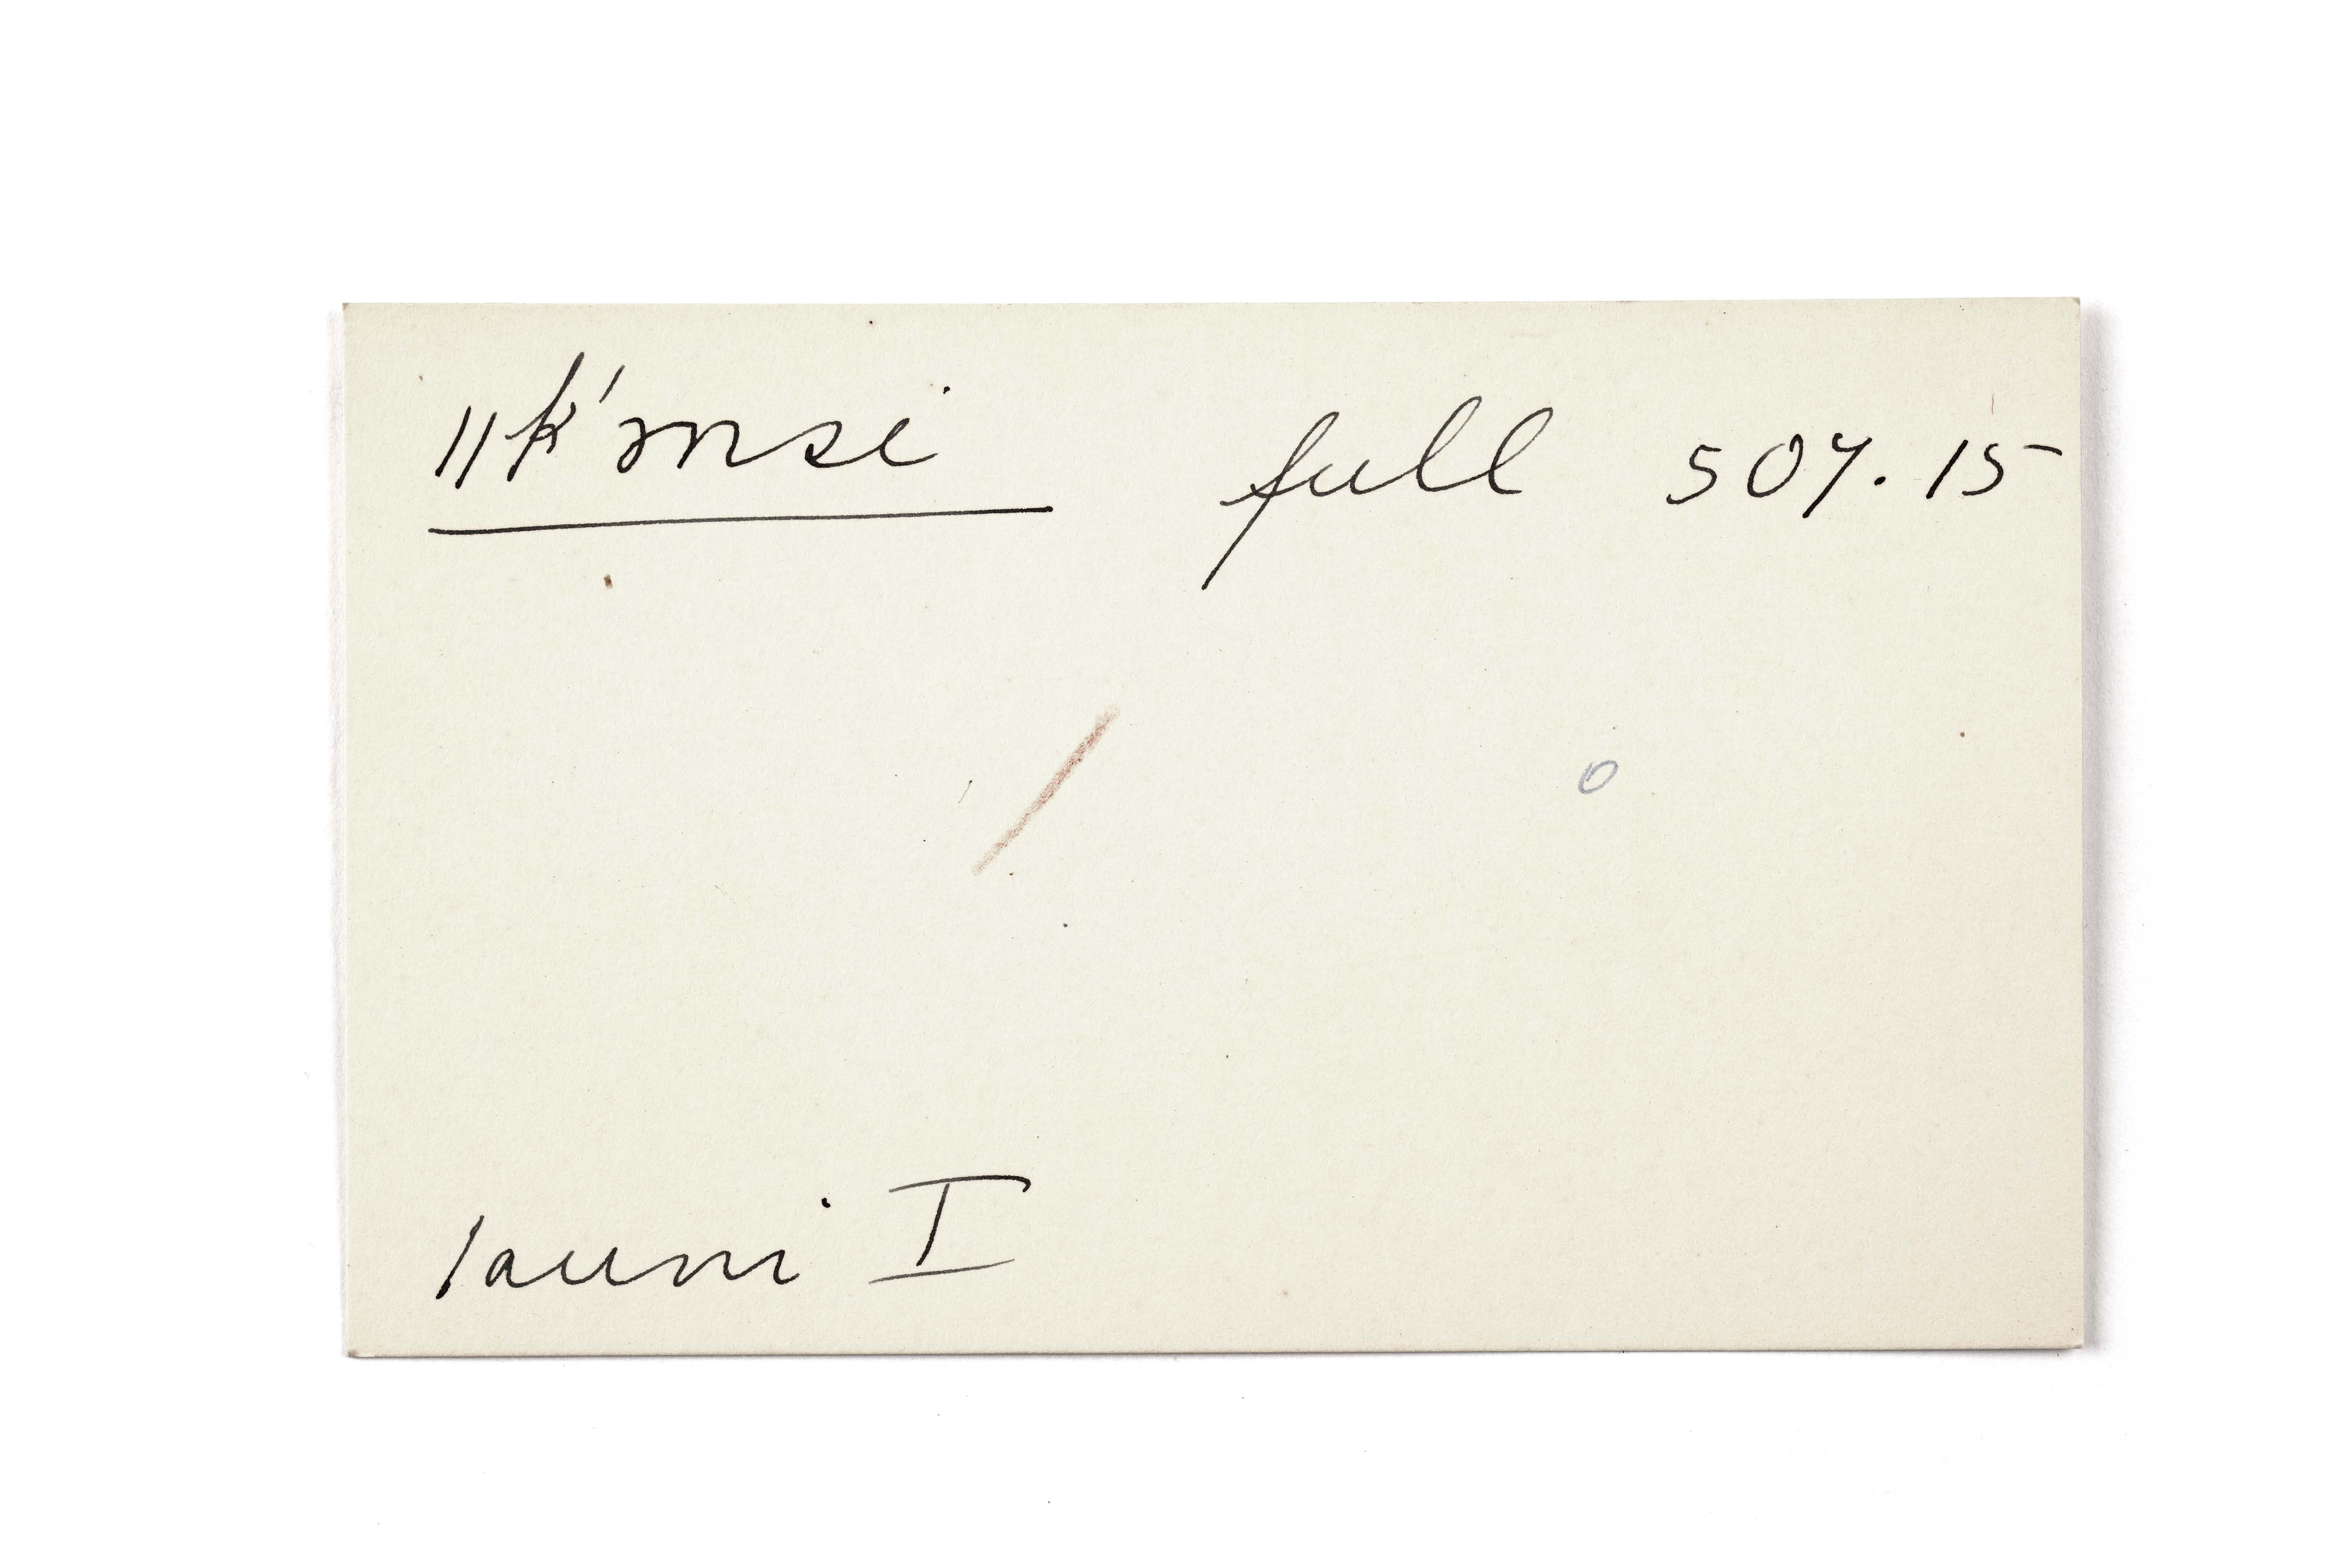 ǁk'ɔnsi full 507.15
ǀauni I